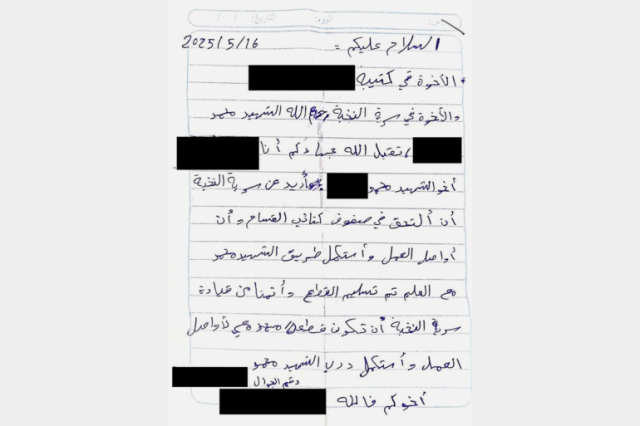 السلام عليكم = 2025/5/16
الأخوة في كتيبة
والأخوة في سرية النخبة رحم الله الشهيد محمد
، تقبل الله جهادكم أنا
أخو الشهيد محمد أريد عن سرية النخبة
أن ألتحق في صفوف كتائب القسام وأن
أواصل العمل وأستكمل طريق الشهيد محمد
مع العلم تم تسليم القطع وأتمنا من قيادة
سرية النخبة أن تكون قطعة محمد معي لأواصل
العمل وأستكمل درب الشهيد محمد
رقم الجوال
أخوكم في الله